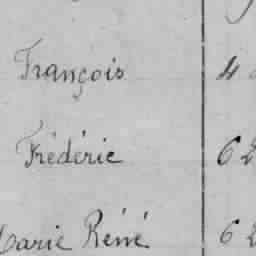 François 4
Frédéric 62
Marie Réné 62